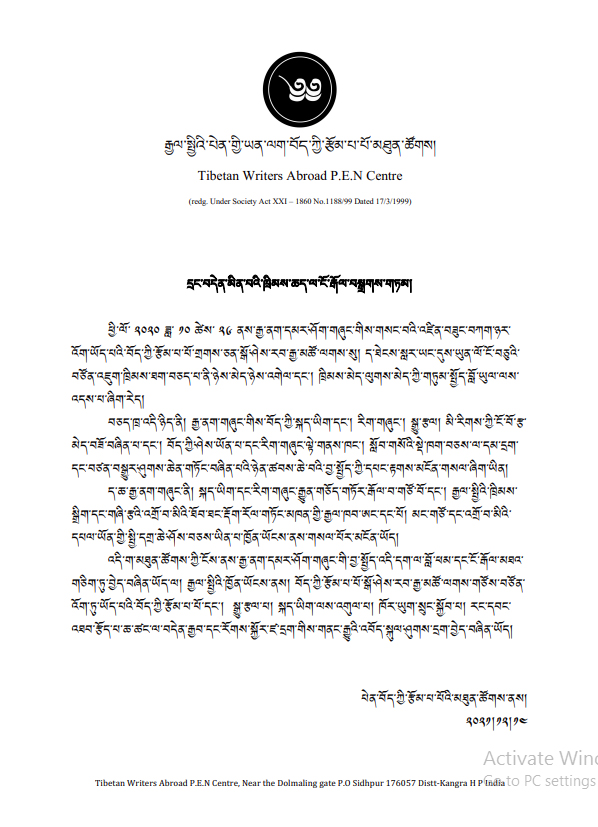 རྒྱལ་སྤྱིའི་པེན་གྱི་ཡན་ལག་བོད་ཀྱི་རྩོམ་པ་པོ་མཐུན་ཚོགས།
Tibetan Writers Abroad P.E.N Centre
(redg. Under Society Act XXI – 1860 No.1188/99 Dated 17/3/1999)
དྲང་བདེན་མིན་པའི་ཁྲིམས་ཆད་ལ་ངོ་རྒོལ་བསྒྲགས་གཏམ།
ཕྱི་ལོ་ ༢༠༢༠ ཟླ་ ༡༠ ཚེས་ ༢༦ ནས་རྒྱ་ནག་དམར་ཤོག་གཞུང་གིས་གསང་བའི་འཛིན་བཟུང་བཀག་ཉར་
འོག་ཡོད་པའི་བོད་ཀྱི་རྩོམ་པ་པོ་གྲགས་ཅན་སྒོ་ཤེས་རབ་རྒྱ་མཚོ་ལགས་སུ། ད་ཐེངས་སླར་ཡང་དུས་ཡུན་ལོ་ངོ་བཅུའི་
བཙོན་འཇུག་ཁྲིམས་ཐག་བཅད་པ་ནི་ཉེས་མེད་ཉེས་འགེལ་དང་། ཁྲིམས་མེད་ལུགས་མེད་ཀྱི་གཏུམ་སྤྱོད་བློ་ཡུལ་ལས་
འདས་པ་ཞིག་རེད།
བཅད་ཁྲ་འདི་ཉིད་ནི། རྒྱ་ནག་གཞུང་གིས་བོད་ཀྱི་སྐད་ཡིག་དང་། རིག་གཞུང་། སྒྱུ་རྩལ། མི་རིགས་ཀྱི་ངོ་བོ་རྩ་
མེད་བཟོ་བཞིན་པ་དང་། བོད་ཀྱི་ཤེས་ཡོན་པ་དང་རིག་གཞུང་ལྟེ་གནས་ཁང་། སློབ་གསོའི་སྡེ་ཁག་བཅས་ལ་དམ་དྲག་
དང་བཙན་བསྒྱུར་ཤུགས་ཆེན་གཏོང་བཞིན་པའི་ཉེན་ཚབས་ཆེ་བའི་བྱ་སྤྱོད་ཀྱི་དཔང་རྟགས་མངོན་གསལ་ཞིག་ཡིན།
ད་ཆ་རྒྱ་ནག་གཞུང་ནི། སྐད་ཡིག་དང་རིག་གཞུང་རྒྱུན་གཅོད་གཏོར་རྒོལ་བ་གཙོ་བོ་དང་། རྒྱལ་སྤྱིའི་ཁྲིམས་
སྒྲིག་དང་གཞི་རྩའི་འགྲོ་བ་མིའི་ཐོབ་ཐང་རྡོག་རོལ་གཏོང་མཁན་གྱི་རྒྱལ་ཁབ་ཨང་དང་པོ། མང་གཙོ་དང་འགྲོ་བ་མིའི་
དཔལ་ཡོན་གྱི་སྤྱི་དགྲ་ཆེ་ཤོས་བཅས་ཡིན་པ་ཁྱོན་ཡོངས་ནས་གསལ་པོར་མངོན་ཡོད།
འདི་ག་མཐུན་ཚོགས་ཀྱི་ངོས་ནས་རྒྱ་ནག་དམར་ཤོག་གཞུང་གི་བྱ་སྤྱོད་འདི་དག་ལ་བློ་ཕམ་དང་ངོ་རྒོལ་མཐའ་
གཅིག་ཏུ་བྱེད་བཞིན་ཡོད་ལ། རྒྱལ་སྤྱིའི་ཁྱོན་ཡོངས་ནས། བོད་ཀྱི་རྩོམ་པ་པོ་སྒོ་ཤེས་རབ་རྒྱ་མཚོ་ལགས་གཙོས་བཙོན་
འོག་ཏུ་ཡོད་པའི་བོད་ཀྱི་རྩོམ་པ་པོ་དང་། སྒྱུ་རྩལ་པ། སྐད་ཡིག་ལས་འགུལ་པ། ཁོར་ཡུག་སྲུང་སྐྱོབ་པ། རང་དབང་
འཐབ་རྩོད་པ་ཆ་ཚང་ལ་བདེན་རྒྱབ་དང་རོགས་སྐྱོར་ཛ་དྲག་གིས་གནང་རྒྱུའི་འབོད་སྐུལ་ཤུགས་དྲག་བྱེད་བཞིན་ཡོད།
པེན་བོད་ཀྱི་རྩོམ་པ་པོའི་མཐུན་ཚོགས་ནས།
༢༠༢༡།༡༢།༡༤
Activate Wind
Go to PC settings
Tibetan Writers Abroad P.E.N Centre, Near the Dolmaling gate P.O Sidhpur 176057 Distt-Kangra H P India